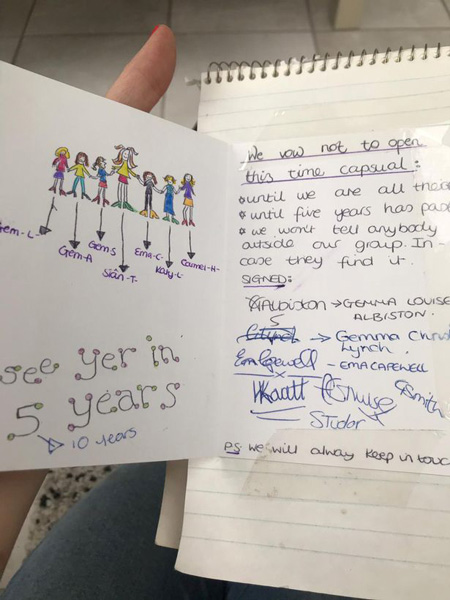 Gem-L
Gem-A
Gem-S
Siân-T-
Ema-C-
Katy-L-
see yer in
5 years
10 years
We vow not to open
this time capsual:
* until we are all
* until five years has
* we won't tell anybody
outside our group. In
case they find it.
SIGNED:
Albiston → GEMMA LOUISE
ALBISTON.
→ Gemma
Lynch.
Em Carewell - EMA CAREWELL
Smith
Studor
PS: we will always keep in